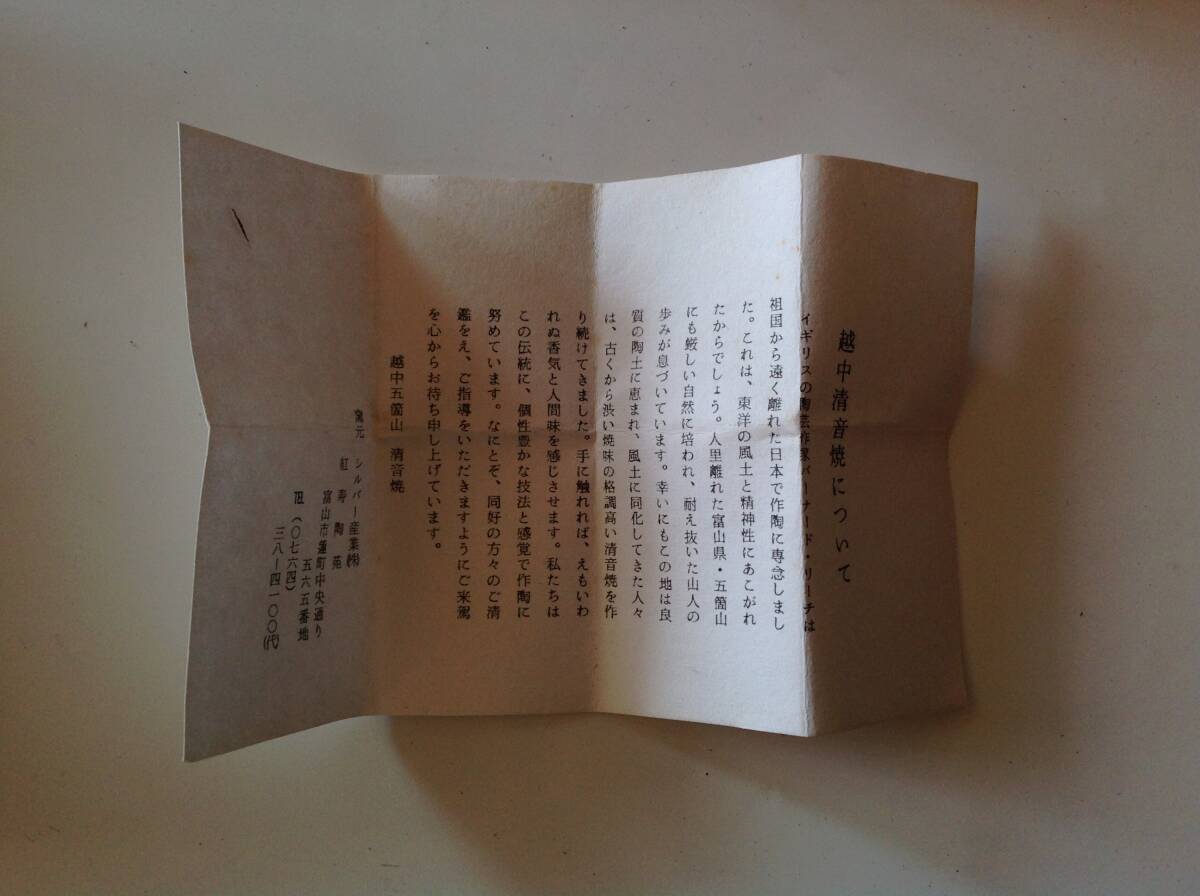 越中清音焼について
イギリスの陶芸作家バーナード・リーチは
祖国から遠く離れた日本で作陶に専念しまし
た。これは、東洋の風土と精神性にあこがれ
たからでしょう。人里離れた富山県・五箇山
にも厳しい自然に培われ、耐え抜いた山人の
歩みが息づいています。幸いにもこの地は良
質の陶土に恵まれ、風土に同化してきた人々
は、古くから渋い焼味の格調高い清音焼を作
り続けてきました。手に触れれば、えもいわ
れぬ香気と人間味を感じさせます。私たちは
この伝統に、個性豊かな技法と感覚で作陶に
努めています。なにとぞ、同好の方々のご清
鑑をえ、ご指導をいただきますようにご来駕
を心からお待ち申し上げています。
越中五箇山 清音焼
窯元 シルバー産業㈱
紅寿陶苑
富山市蓮町中央通り
五六五番地
TEL(〇七六四)
三八ー四一〇〇㈹